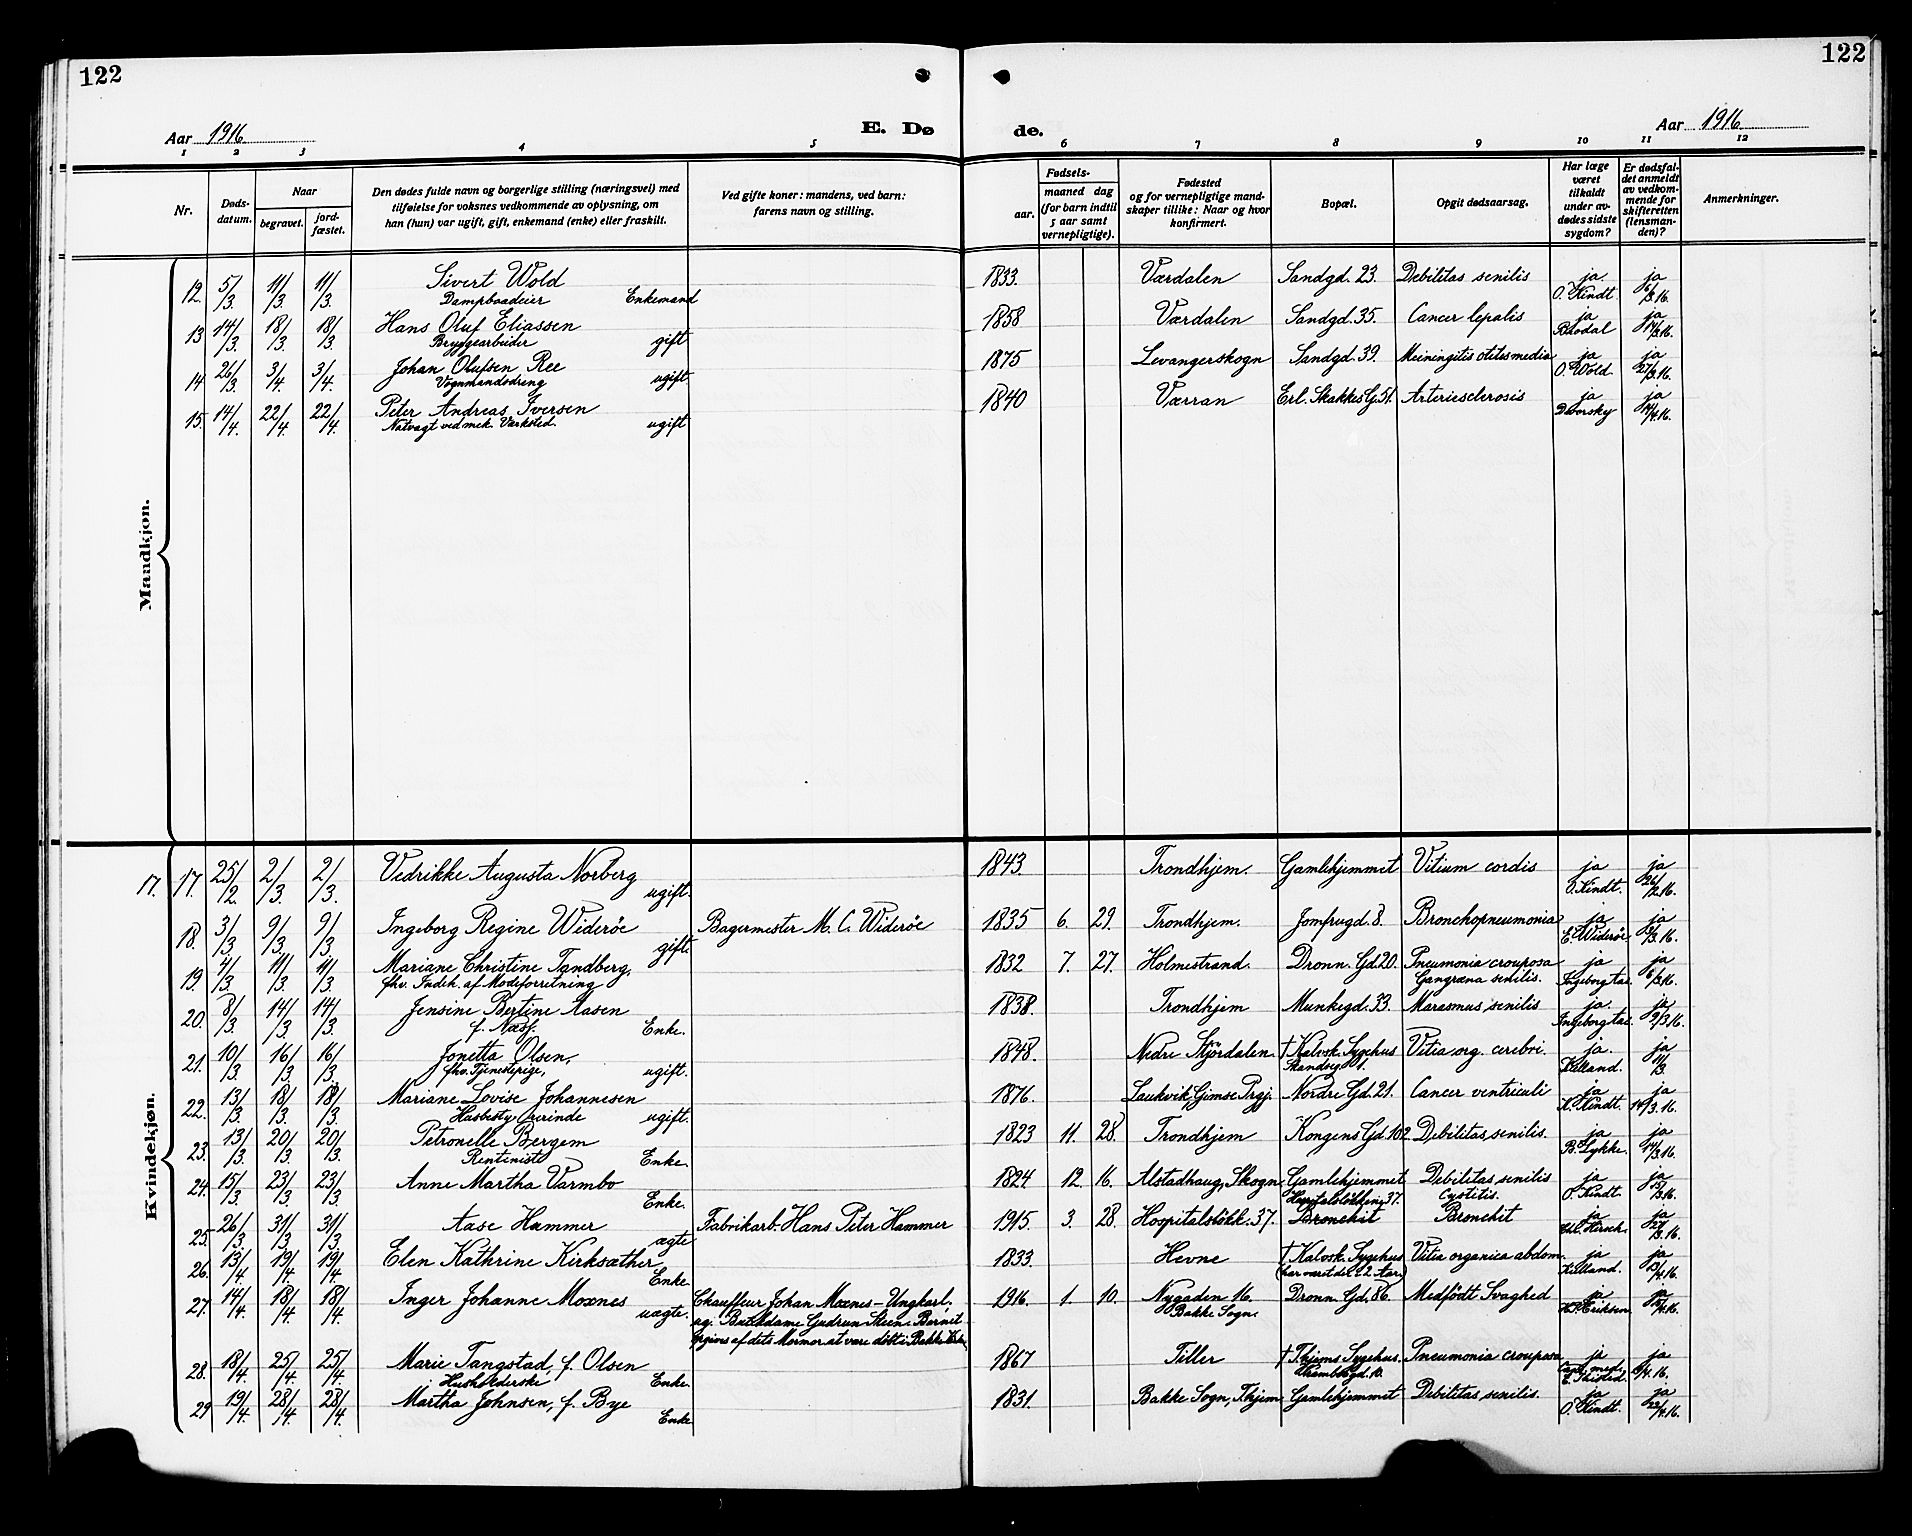 122
122
Aar 1916
E. Dø
de.
Aar 1916
1 2 3 4 5 6 7 8 9 10 11 12
Nr.
Døds-
datum.
Naar
begravet.
jord-
fæstet.
Den dødes fulde navn og borgerlige stilling (næringsvei) med
tilføielse for voksnes vedkommende av oplysning, om
han (hun) var ugift, gift, enkemand (enke) eller fraskilt.
Ved gifte koner: mandens, ved barn:
farens navn og stilling.
aar.
Fødsels-
maaned dag
(for barn indtil
5 aar samt
vernepligtige).
Fødested
og for vernepligtige mand-
skaper tillike: Naar og hvor
konfirmert.
Bopæl.
Opgit dødsaarsag.
Har læge
været
tilkaldt
under av-
dødes sidste
sygdom?
Er dødsfal-
det anmeldt
av vedkom-
mende for
skifteretten
(lensman-
den)?
Anmerkninger.
Mandkjøn.
12. 5/3. 11/3 11/3. Sivert Wold 1833. Værdalen Sandgd. 23. Debilitas senilis ja ja
Dampbaadeier Enkemand O. Kindt. 6/3.16.
13 14/3. 18/3 18/3. Hans Oluf Eliassen 1858 Værdalen Sandgd. 35. Cancer lepalis ja ja
Bryggearbeider gift 14/3.16.
14 26/3. 3/4. 3/4. Johan Olufsen Ree 1875 Levangerskogn Sandgd. 39. Meiningitis otitesmedia ja ja
Vognmandsdreng ugift O. Wold. 27/3.16.
15. 14/4. 22/4. 22/4. Peter Andreas Iversen 1840 Værran Erl. Skakkes G. 51. Arteriesclerosis ja ja
Natvagt ved mek. Værksted. ugift Dworsky 14/4.16.
Kvindekjøn.
17. 17. 25/2. 2/3. 2/3. Vedrikke Augusta Norberg 1843. Trondhjem. Gamlehjemmet Vitium cordis ja ja
ugift. O. Kindt. 26/2.16.
18. 3/3. 9/3. 9/3. Ingeborg Regine Widerøe Bagermester M. C. Widerøe 1835 6. 29. Trondhjem. Jomfrugd. 8. Bronchopneumonia ja ja
gift. E. Widerøe. 3/3.16.
19. 4/3. 11/3. 11/3. Mariane Christine Tandberg, 1832 7. 27. Holmestrand. Dronn. Gd. 20. Pneumonia crouposa ja ja
fhv. Indeh. af Modeforretning Gangræna senilis. Ingeborg Aas. 6/3.16.
20. 8/3. 14/3 14/3. Jensine Bertine Aasen 1838. Trondhjem Munkegd. 33. Marasmus senilis ja. ja
f. Næss. Enke. Ingeborg Aas. 9/3.16.
21. 10/3 16/3 16/3. Jonetta Olsen, 1848. Nedre Stjördalen. † Kalvsk. Sygehus Vitia org. cerebri. ja. ja
fhv. Tjenestepige, ugift. 1. Kielland. 11/3
22. 13/3 18/3. 18/3. Mariane Lovise Johannesen 1876. Laukvik, Gimsø Prgj. Nordre Gd. 21. Cancer ventriculi ja ja
Husbestyrerinde ugift. K. Kindt. 14/3.16.
23. 13/3. 20/3 20/3. Petronelle Bergem 1823 11. 28. Trondhjem Kongens Gd. 102 Debilitas senilis. ja ja
Rentenist Enke. B. Lykke. 14/3.16.
24. 15/3. 23/3 23/3 Anne Martha Varmbo 1824. 12. 16. Alstadhaug, Skogn Gamlehjemmet Debilitas senilis ja ja
Enke. Cystitis. O. Kindt. 15/3.16.
25. 26/3 31/3 31/3 Aase Hammer Fabrikarb. Hans Peter Hammer 1915. 3. 28. Hospitalsløkk. 37. Hospitalsløkken 37. Bronchit Bronchit ja ja
ægte Chl. Hirsch. 27/3.16.
26. 13/4 19/4 19/4 Elen Kathrine Kirksæther 1833. Hevne † Kalvsk. Sygehus Vitia organica abdom. ja ja
Enke (har været der i 2 Aar) Kielland. 13/4.16.
27. 14/4 18/4 18/4 Inger Johanne Moxnes Chauffeur Johan Moxnes – Ungkarl. 1916. 1. 10. Nygaden 16. Dronn. Gd. 86. Medfödt Svaghed ja ja
uægte. ug. Butikdame Gudrun Steen. Barnet Bakke Sogn. K. Eriksen
opgives af dets Mormor at være döbt i Bakke Kirke
28. 18/4. 25/4. 25/4. Marie Tangstad, f. Olsen 1867 Tiller † Thjems Sygehus. Pneumonia crouposa ja ja
Husholderske Enke. Krambodgd. 10. Cand. med. 4.16.
29 19/4. 28/4. 28/4. Martha Johnsen, f. Bye 1831. Bakke Sogn, Thjem Gamlehjemmet Debilitas senilis. ja ja
Enke O. Kindt. 22/4.16.